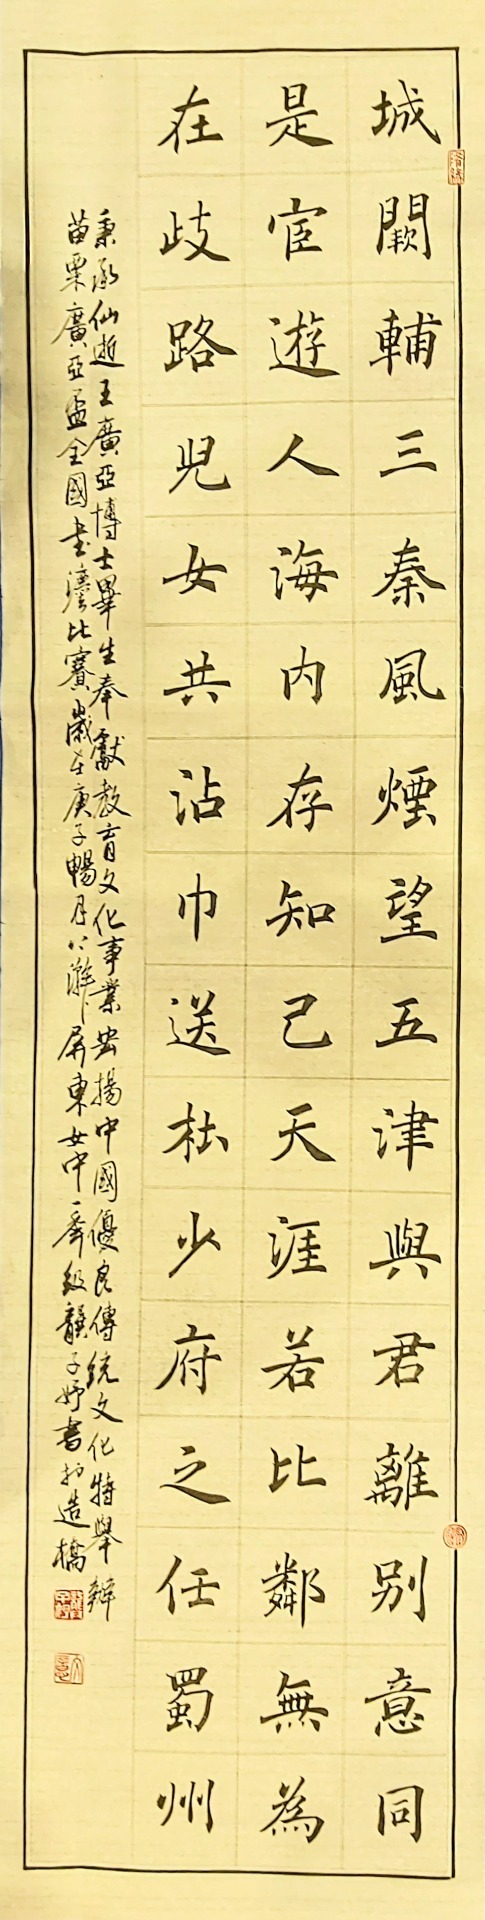 城闕輔三秦風煙望五津與君離別意同
是宦遊人海內存知己天涯若比鄰無為
在歧路兒女共沾巾送杜少府之任蜀州
秉承仙逝王廣亞博士畢生奉獻教育文化事業共揚中國優良傳統文化特舉辦
苗栗廣亞盃全國書法比賽歲在庚子暢月屏東女中一年級龔子妤書於造橋